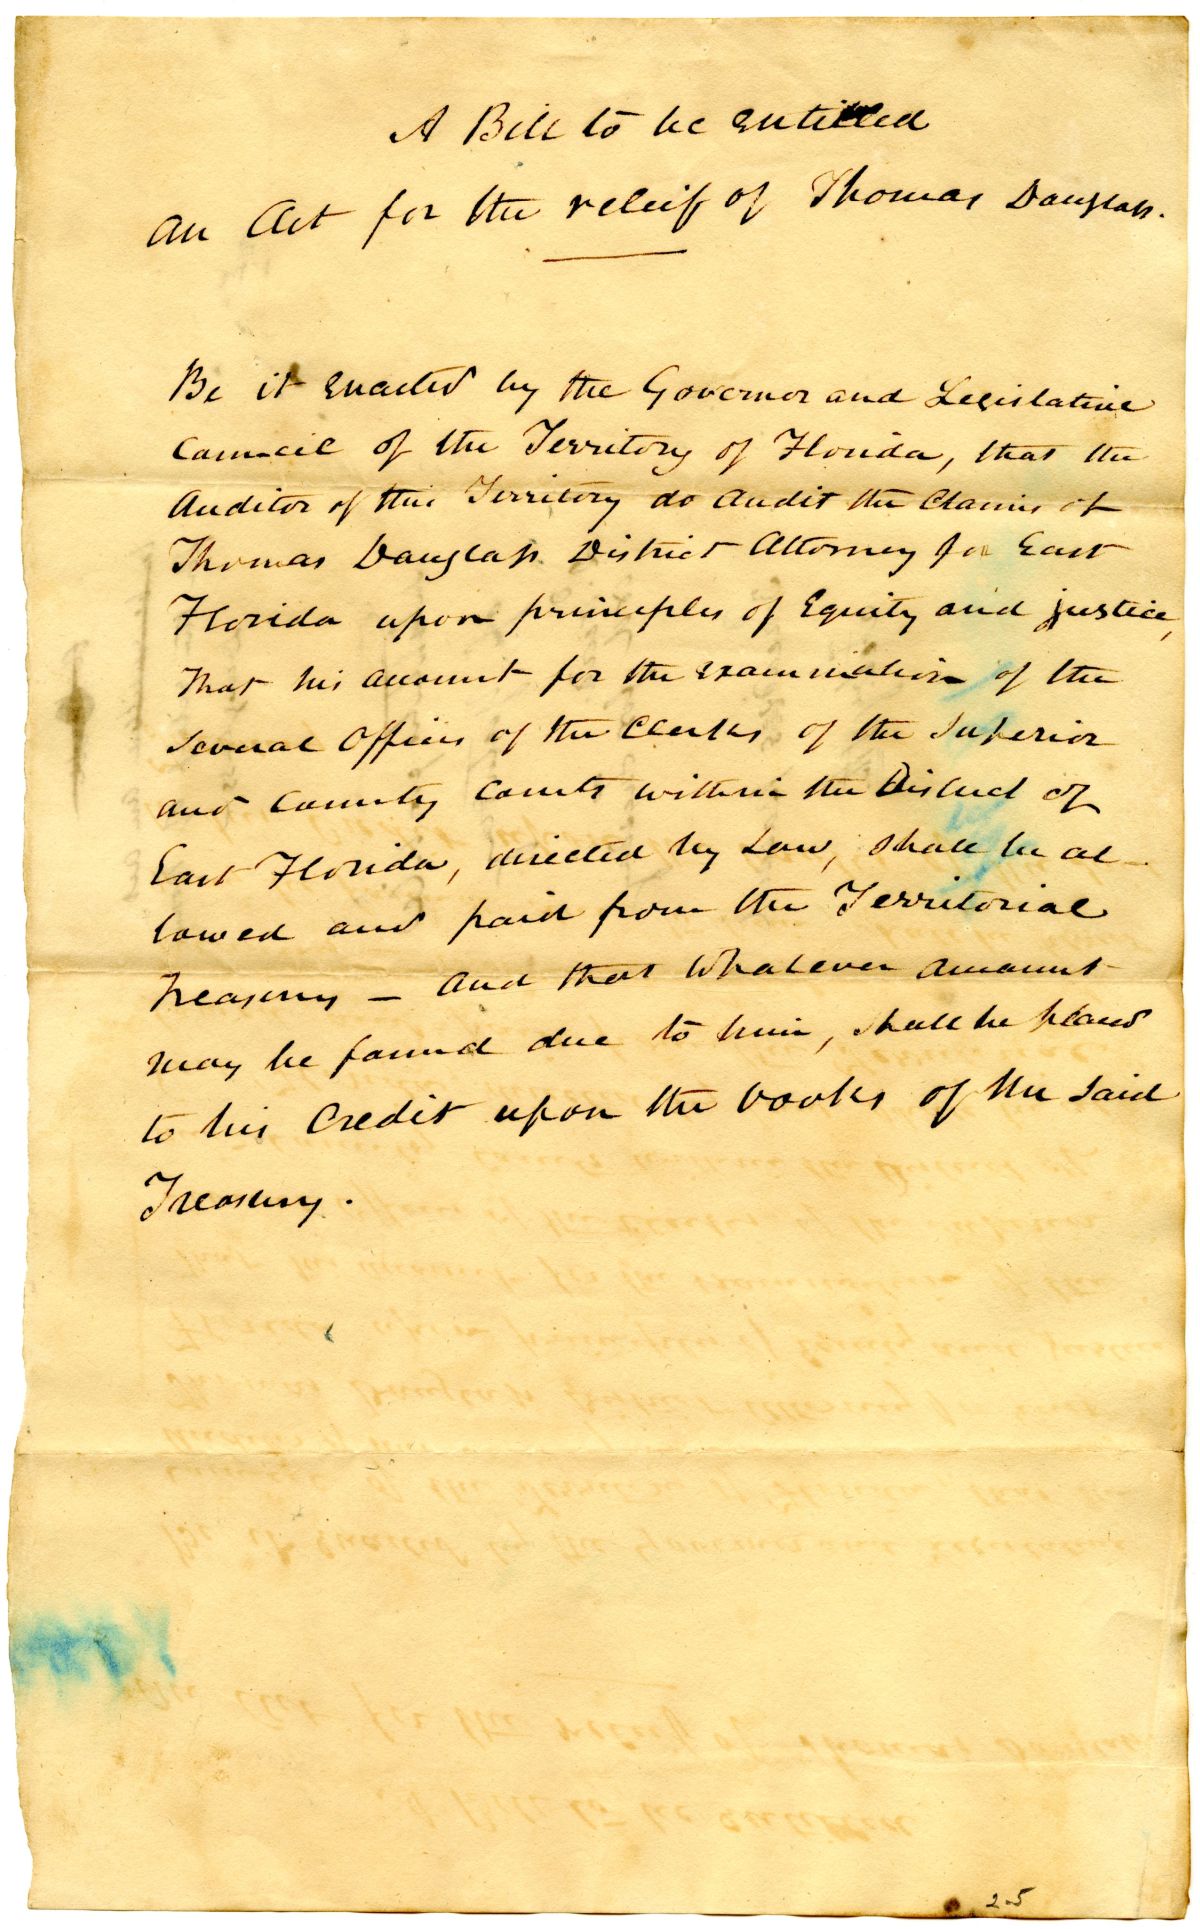 A Bill to be entitled
An Act for the releif of Thomas Douglass.
Be it enacted by the Governor and Legislative
Council of the Territory of Florida, that the
Auditor of this Territory do audit the Claims of
Thomas Douglass District Attorney for East
Florida upon principles of Equity and justice,
That his account for the examination of the
several Offices of the Clerks of the Superior
and County Courts within the District of
East Florida, directed by Law, shall be al-
lowed and paid from the Territorial
Treasury – And that Whatever amount
may be found due to him, shall be placed
to his Credit upon the books of the said
Treasury.
25